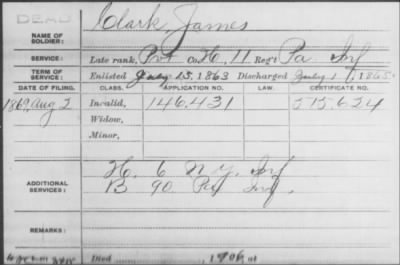 DEAD
Clark, James
NAME OF SOLDIER:
SERVICE: Late rank, Pvt Co. H, 11 Reg't Pa Inf
TERM OF SERVICE: Enlisted July 15, 1863 Discharged July 1, 1865
DATE OF FILING. CLASS. APPLICATION NO. LAW. CERTIFICATE NO.
1869, Aug 2 Invalid, 146,431 515,624
Widow,
Minor,
H, 6 N.Y. Inf
ADDITIONAL SERVICES: B 90 Pa Inf.
REMARKS:
Died , 1906, at